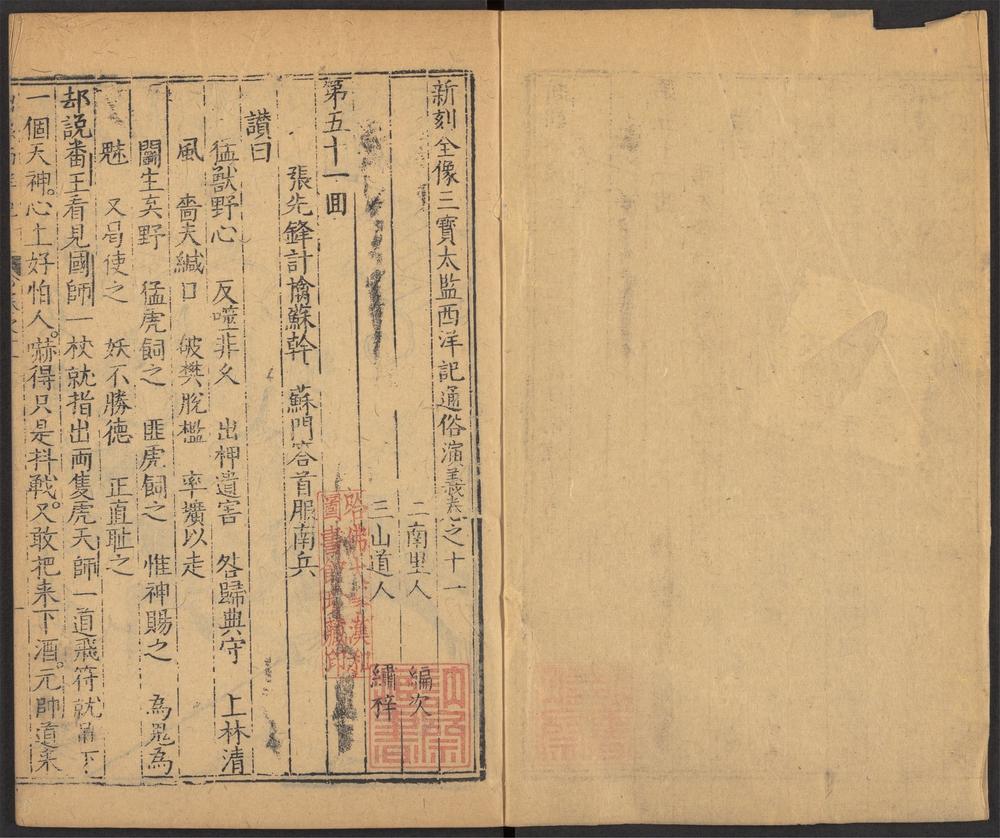 新刻全像三寶太監西洋記通俗演義卷之十一
二南里人 編次
三山道人 繡梓
第五十一囬
張先鋒計擒蘇幹 蘇門答首服南兵
讃曰
猛獸野心 反噬非久 出柙遺害 咎歸典守 上林清
風 嗇夫緘口 破樊脫檻 率壙以走
鬬生矣野 猛虎飼之 匪虎飼之 惟神賜之 為鬼為
魅 又曷使之 妖不勝德 正直耻之
却說番王看見國師一杖就指出両隻虎天師一道飛符就吊下
一個天神。心上好怕人。嚇得只是抖戰。又敢把来下酒。元帥道来
哈佛大學漢和
圖書館珍藏印